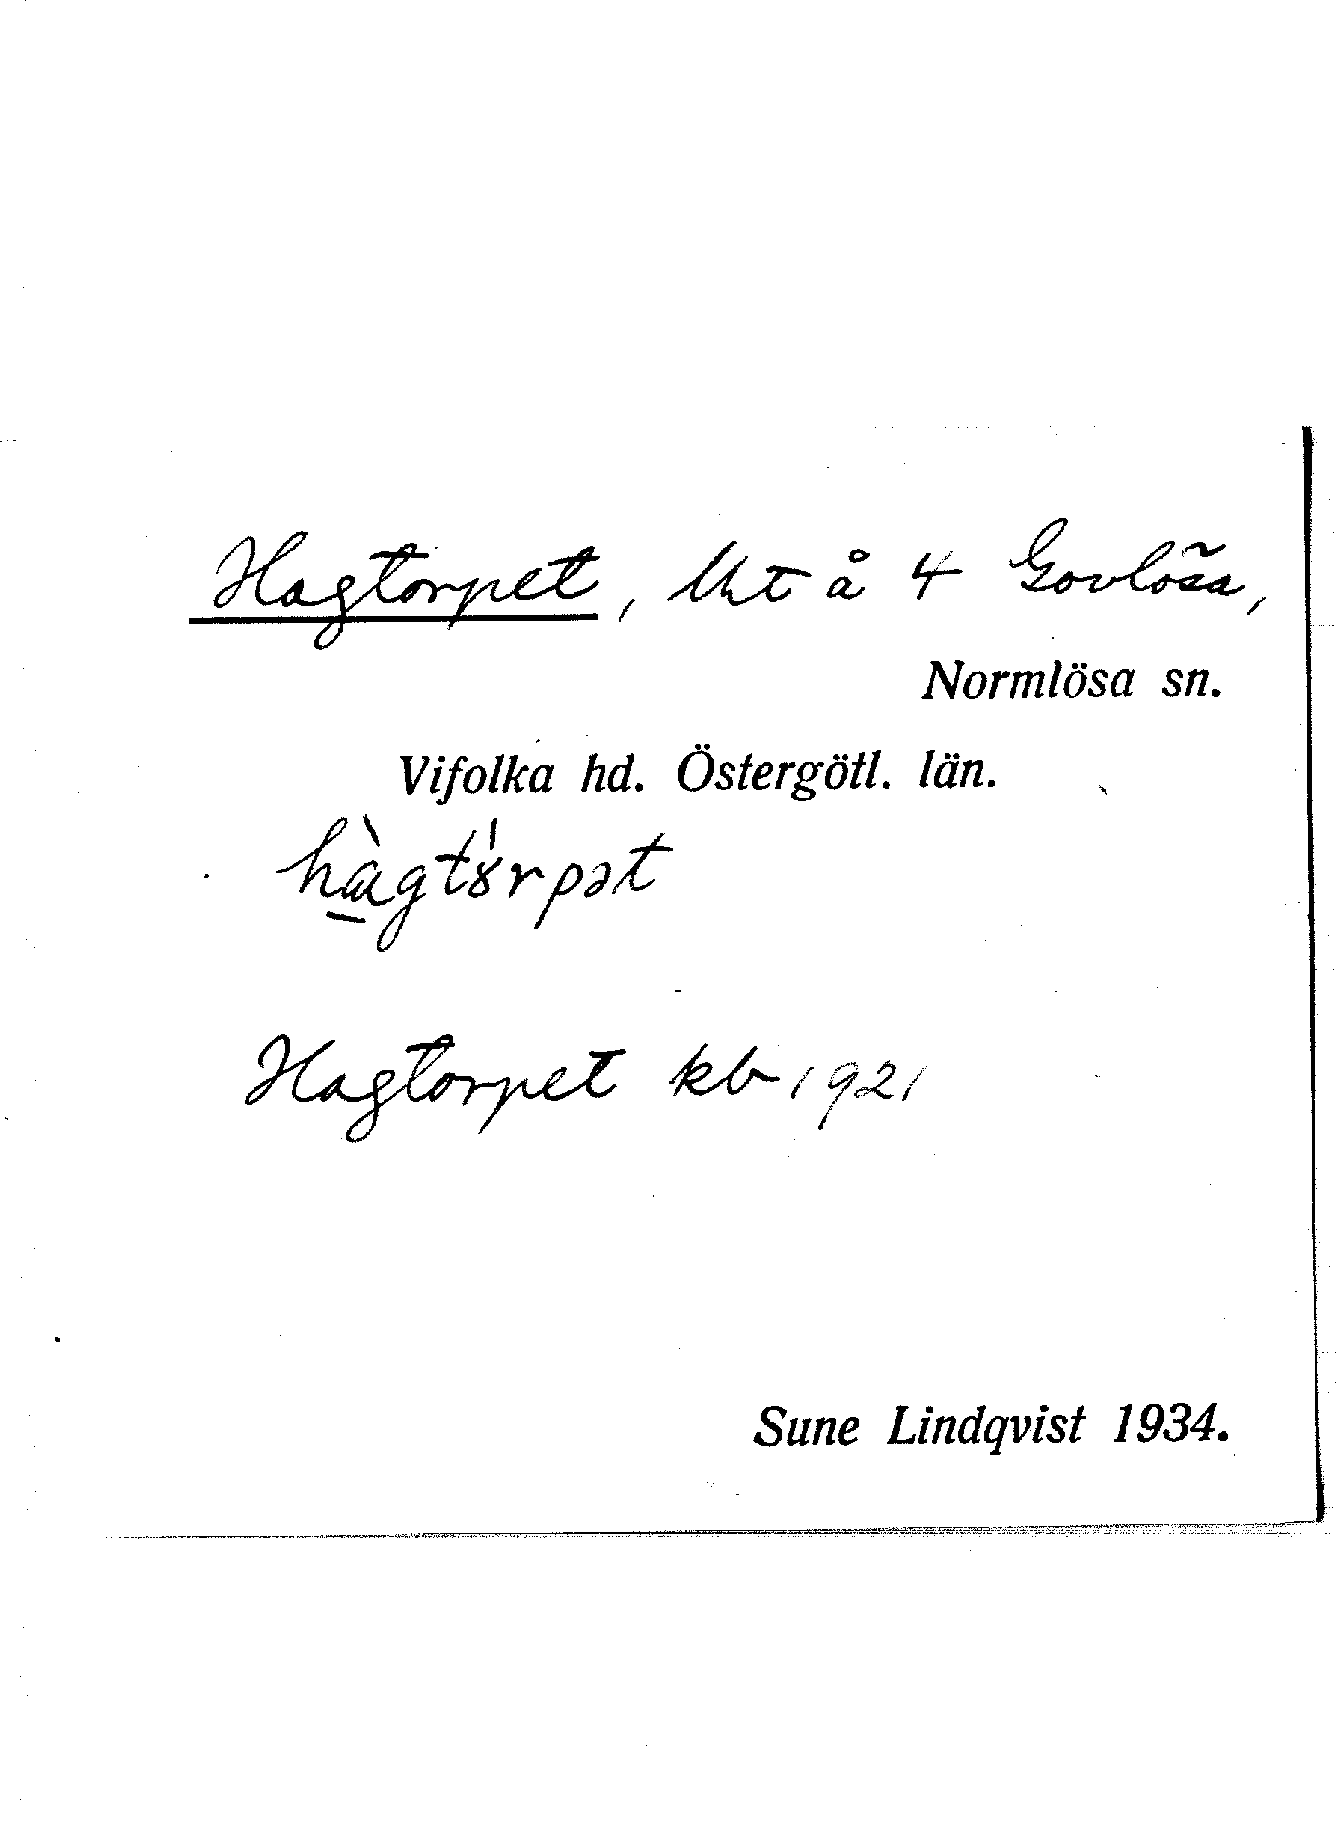 Hagtorpet, lht å 4 Govlösa,
Normlösa sn.
Vifolka hd. Östergötl. län.
hàgtórpət
Hagtorpet kb 1921
Sune Lindqvist 1934.